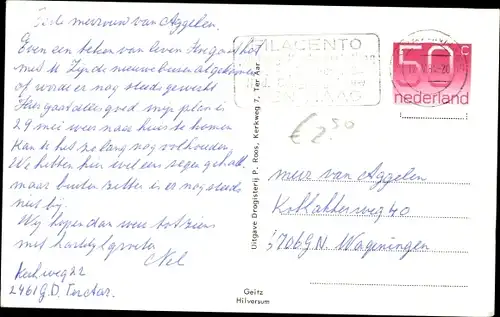 Beste mevrouw van Aggelen.
Even een teken van leven Hoe gaat het
met U. Zijn de nieuwe buren al gekomen
of wordt er nog steeds gewerkt
Hier gaat alles goed mijn plan is
29 mei weer naar huis te komen
Kan ik het zo lang nog volhouden.
We hebben hier wel een zegen gehad.
maar buiten zitten is er nog steeds
niet bij.
Wij hopen dan weer tot ziens
met hartelijk groeten
Nel
Kerkweg 22
2461 G.D. Ter Aar.
Uitgave Drogisterij P. Roos, Kerkweg 7, Ter Aar
FILACENTO
50 c
nederland
€ 2,50
mevr van Aggelen
40
6706 G N. Wageningen
Geitz
Hilversum